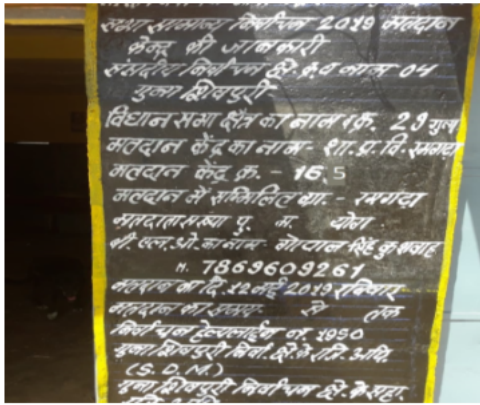 सभा सामान्य निर्वाचन 2019 मतदान
केन्द्र की जानकारी
संसदीय निर्वाचन क्षे. क्र. व नाम 04
गुना शिवपुरी
विधान सभा क्षेत्र का नाम क्र. 29 गुना
मतदान केंद्र का नाम - शा. प्रा. वि. रमगढा
मतदान केंद्र क्र. - 16.5
मतदान में सम्मिलित ग्रा. - रमगढा
मतदाता संख्या पु. म. योग
बी. एल. ओ. का नाम गोपाल सिंह कुशवाह
M. 7869609261
मतदान का दि. 12 मई 2019 रविवार
मतदान का समय से तक
निर्वाचन हेल्पलाईन नं. 1950
गुना शिवपुरी निर्वा. क्षे. के रजि. अधि.
(S.D.M.)
गुना शिवपुरी निर्वाचन क्षे. के सहा.